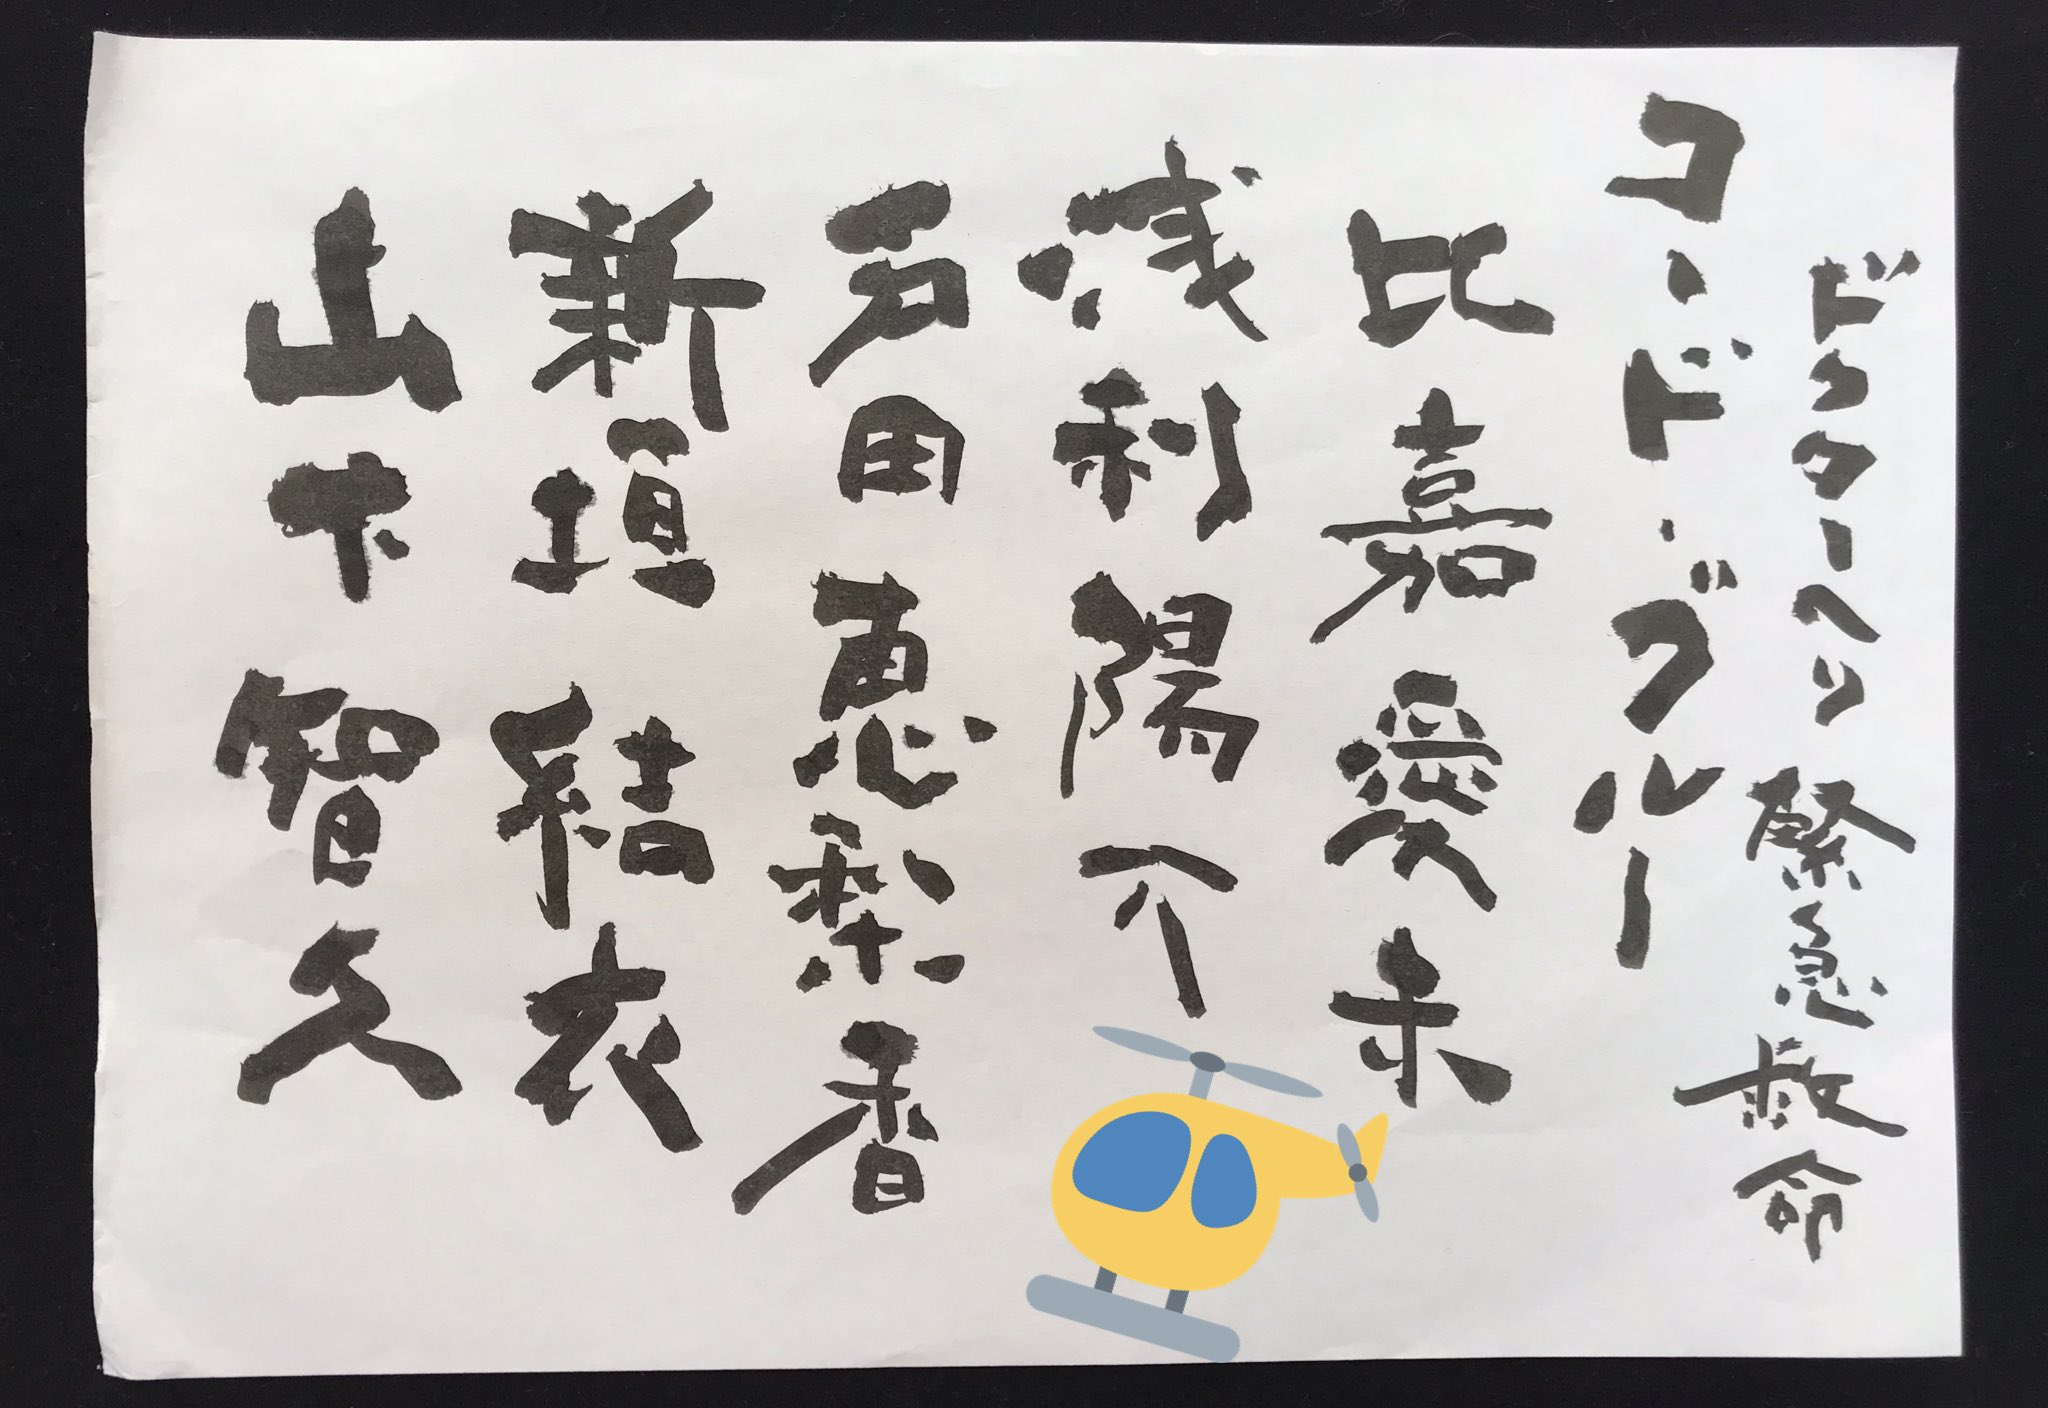 ドクターヘリ 緊急救命
コード・ブルー
比嘉愛未
浅利陽介
戸田恵梨香
新垣結衣
山下智久